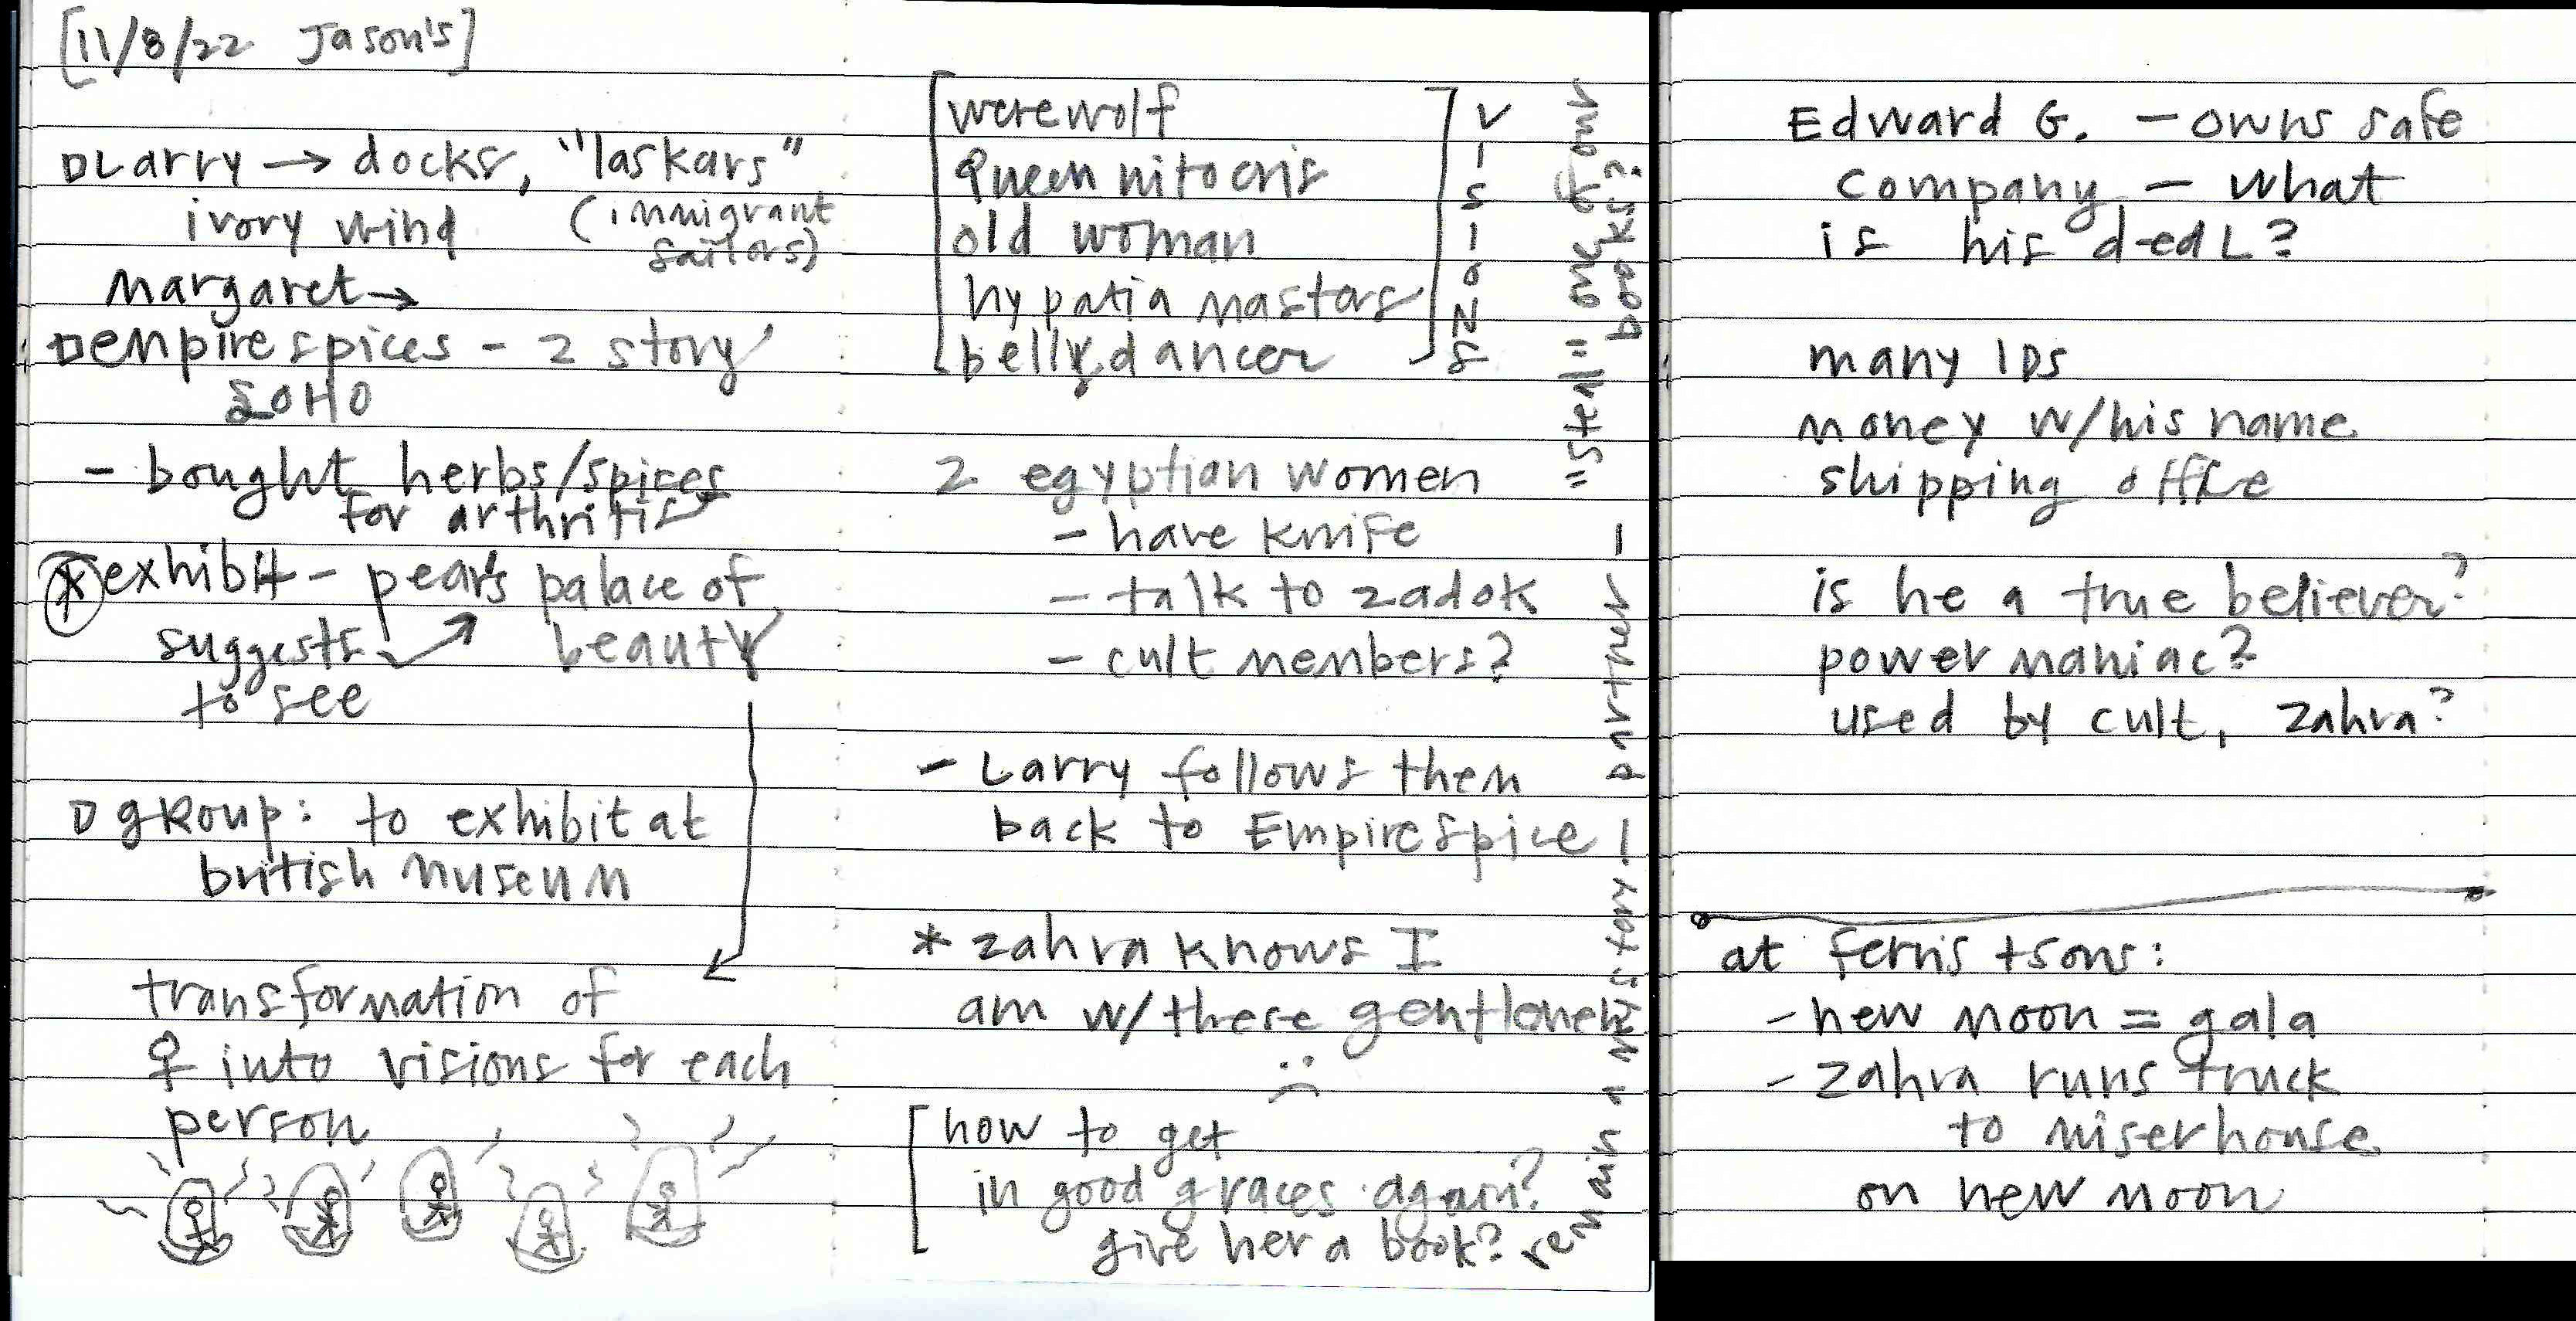 [11/8/22 Jason's]
Larry → docks, "laskars"
ivory wind (immigrant
sailors)
Margaret →
empire spices - 2 story
SOHO
- bought herbs/spices
for arthritis
* exhibit - pears palace of
suggests beauty
to see
group: to exhibit at
british museum
transformation of
♀ into visions for each
person
werewolf
Queen nitocris
old woman
hypatia mastors
belly dancer
VISIONS
2 egyptian women
- have knife
- talk to zadok
- cult members?
- Larry follows them
back to Empire spice
* zahra knows I
am w/ these gentlemen
:(
[how to get
in good graces again?
give her a book?
remain a mystory! partner -
"steal" one of our
books?
Edward G. - owns safe
company - what
is his dedL?
many IDs
money w/his name
shipping office
is he a true believer?
power maniac?
used by cult, zahra?
at ferris tsons:
- new moon = gala
- zahra runs truck
to miserhouse
on new moon